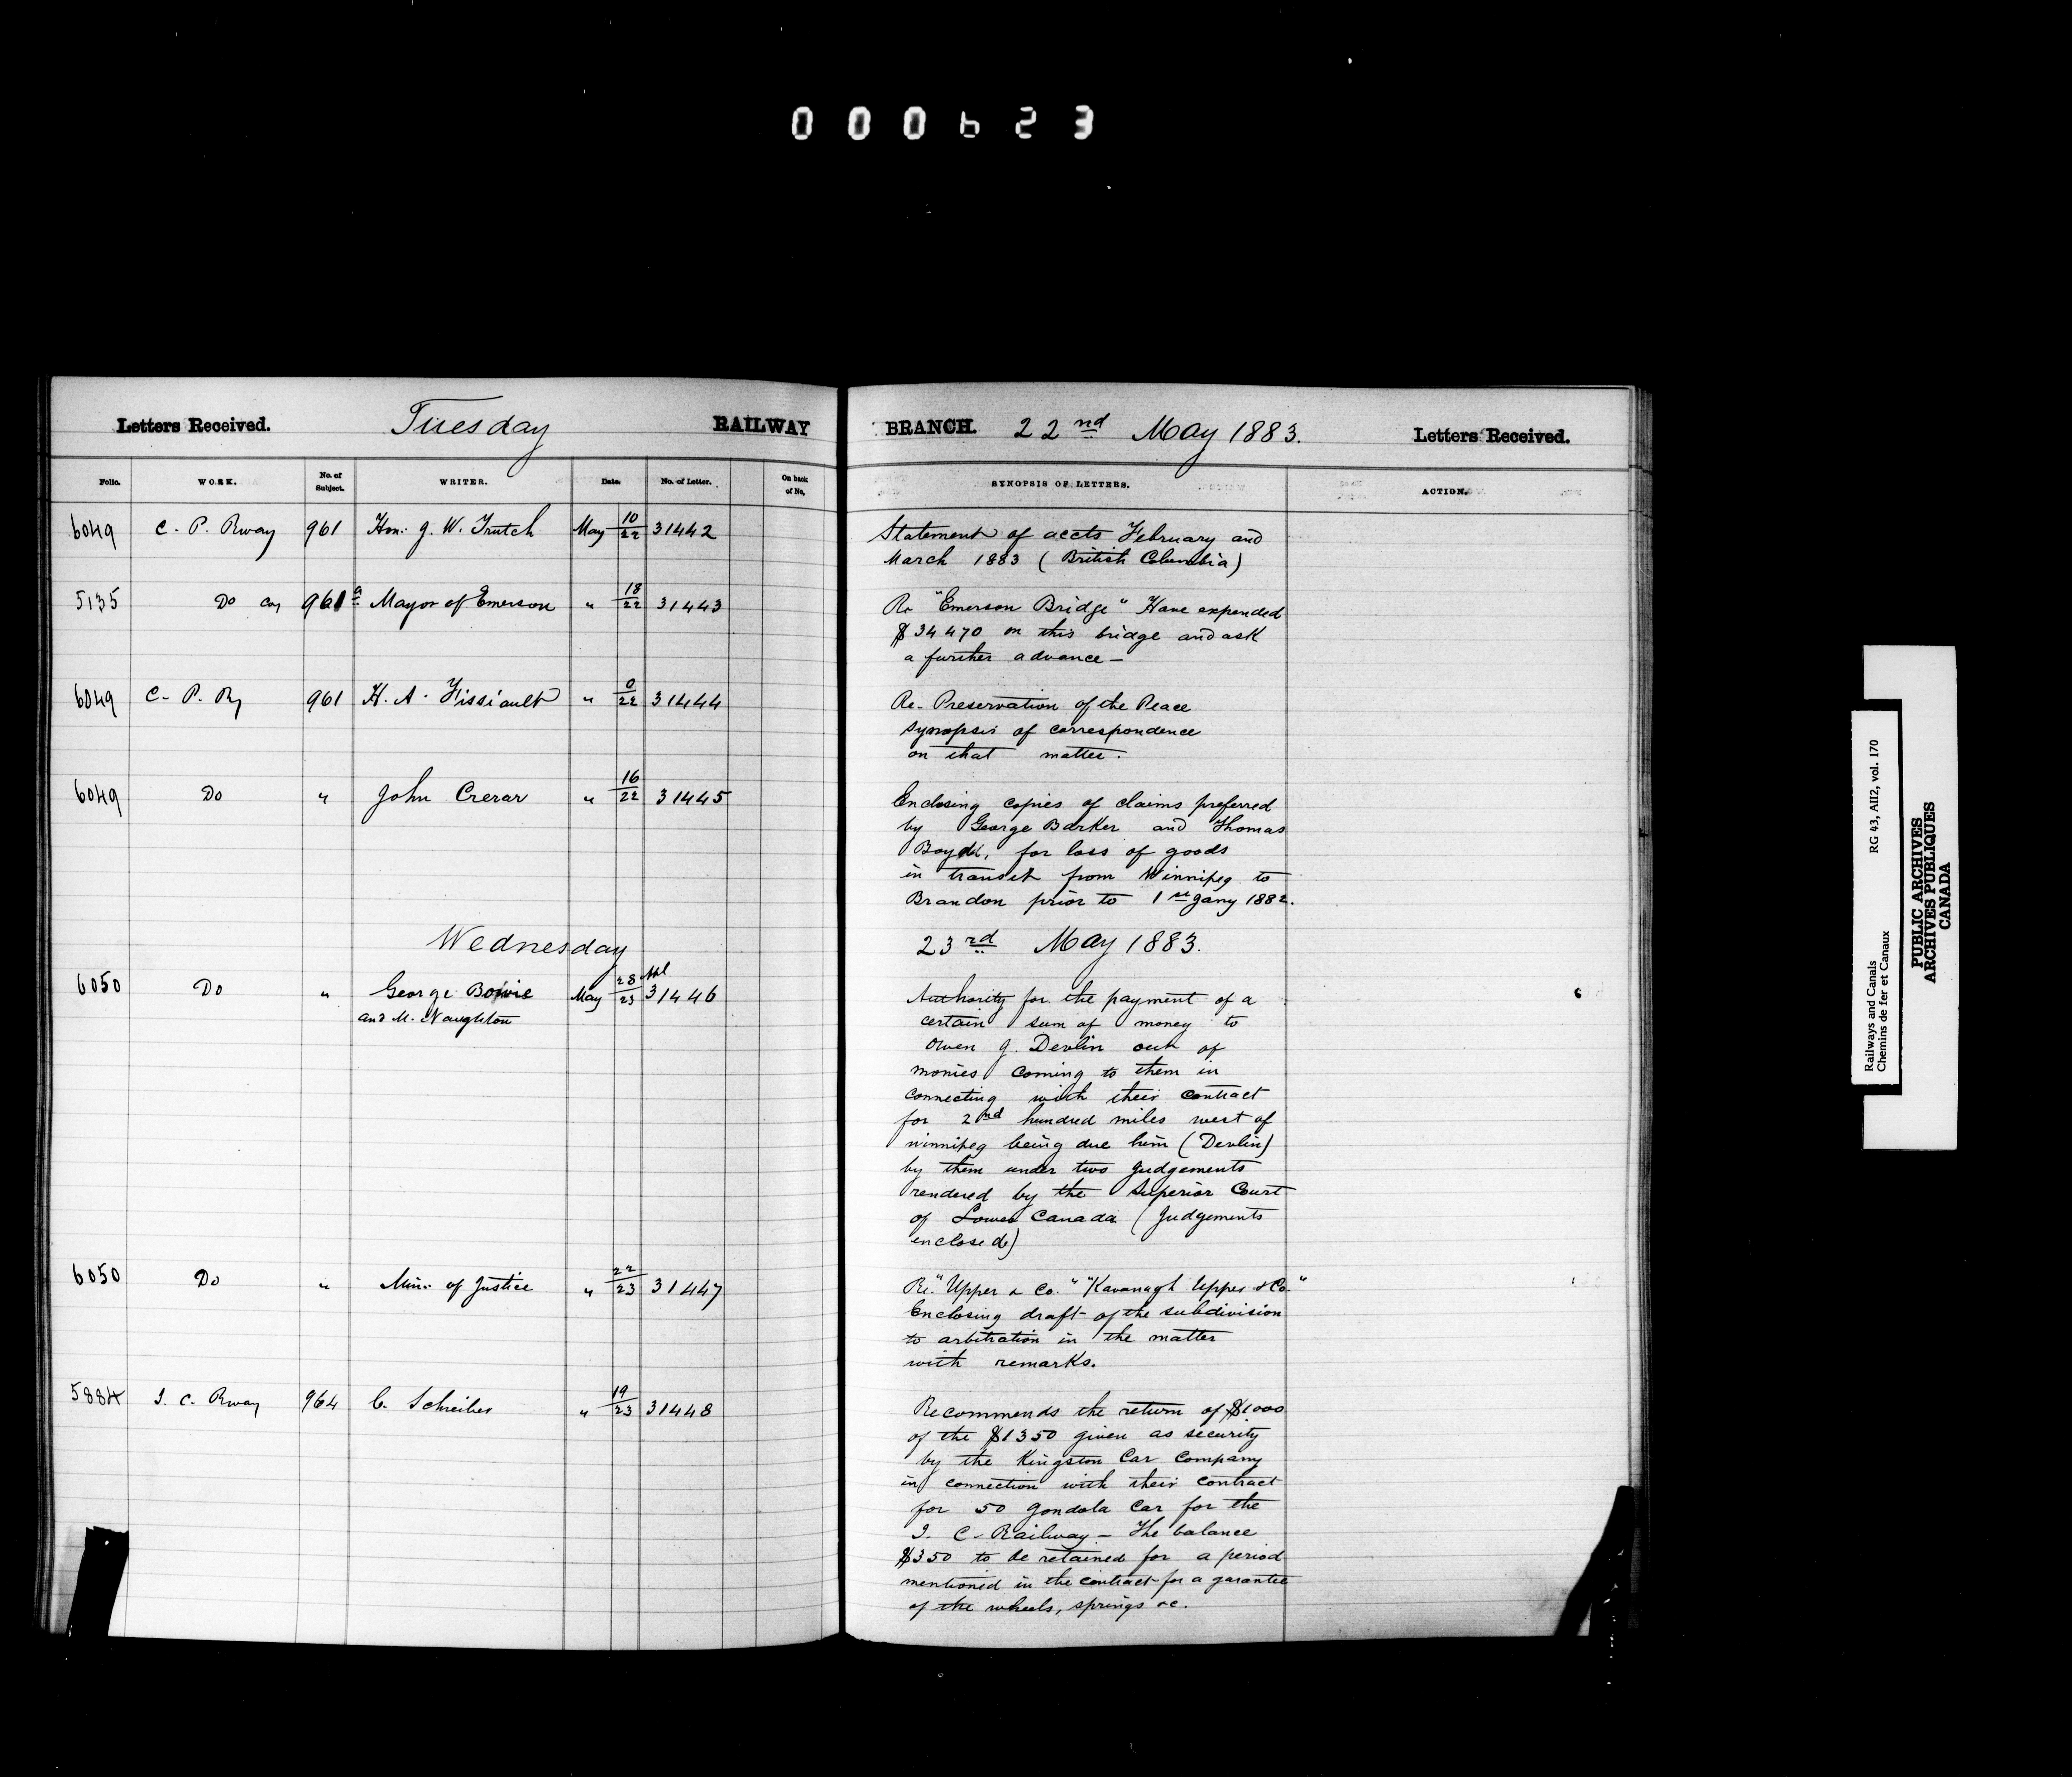 000623
Letters Received. Tuesday RAILWAY BRANCH. 22nd May 1883. Letters Received.
Folio. WORK. No. of Subject. WRITER. Date. No. of Letter. On back of No. SYNOPSIS OF LETTERS. ACTION.
6049 C. P. Rway 961 Hon. J. W. Trutch May 10/22 31442 Statement of accts February and
March 1883 (British Columbia)
5135 Do Coy 961a Mayor of Emerson " 18/22 31443 Re "Emerson Bridge" Have expended
$34470 on this bridge and ask
a further advance —
6049 C. P. Ry 961 H. A. Fissiault " 0/22 31444 Re- Preservation of the Peace
synopsis of correspondence
on that matter.
6049 Do " John Crerar " 16/22 31445 Enclosing copies of claims preferred
by George Barker and Thomas
Boyd, for loss of goods
in transit from Winnipeg to
Brandon prior to 1st Jany 1882.
Wednesday 23rd May 1883.
6050 Do " George Bowie May 28 Apl/23 31446 Authority for the payment of a
and M. Naughton
certain sum of money to
Owen J. Devlin out of
monies coming to them in
connecting with their contract
for 2nd hundred miles west of
Winnipeg being due him (Devlin)
by them under two Judgements
rendered by the Superior Court
of Lower Canada (Judgements
enclosed)
6050 Do " Min. of Justice " 22/23 31447 Re. "Upper & Co." "Kavanagh Upper & Co."
Enclosing draft of the subdivision
to arbitration in the matter
with remarks.
5884 I. C. Rway 964 C. Schreiber " 19/23 31448 Recommends the return of $1000
of the $1350 given as security
by the Kingston Car Company
in connection with their contract
for 50 Gondola Car for the
I. C. Railway — The balance
$350 to be retained for a period
mentioned in the contract for a garantee
of the wheels, springs &c.
Railways and Canals RG 43, AII2, vol. 170
Chemins de fer et Canaux
PUBLIC ARCHIVES
ARCHIVES PUBLIQUES
CANADA